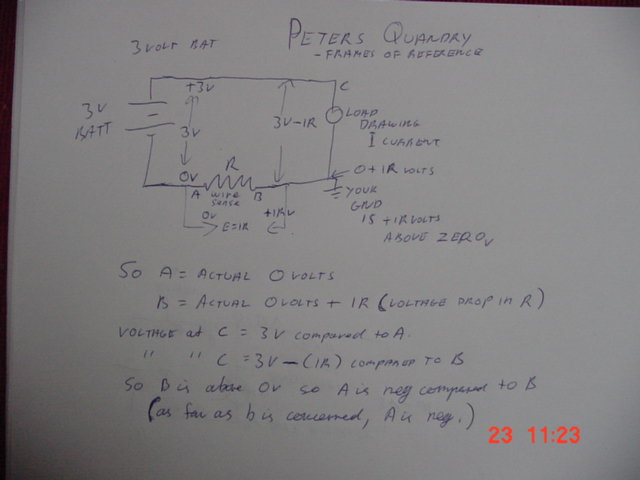 PETERS QUANDRY
- FRAMES OF REFERENCE
3 VOLT BAT
+3V
C
3V
BATT
3V
3V-IR
LOAD
DRAWING
I CURRENT
0V
R
A
WIRE
SENSE
B
0V
+IRV
E=IR
0+IR VOLTS
YOUR
GND
IS +IR VOLTS
ABOVE ZERO V
SO A = ACTUAL 0 VOLTS
B = ACTUAL 0 VOLTS + IR (VOLTAGE DROP IN R)
VOLTAGE at C = 3V compared to A.
" " C = 3V - (IR) COMPARED TO B
SO B is above 0V so A is neg compared to B
(as far as b is concerned, A is neg.)
23 11:23